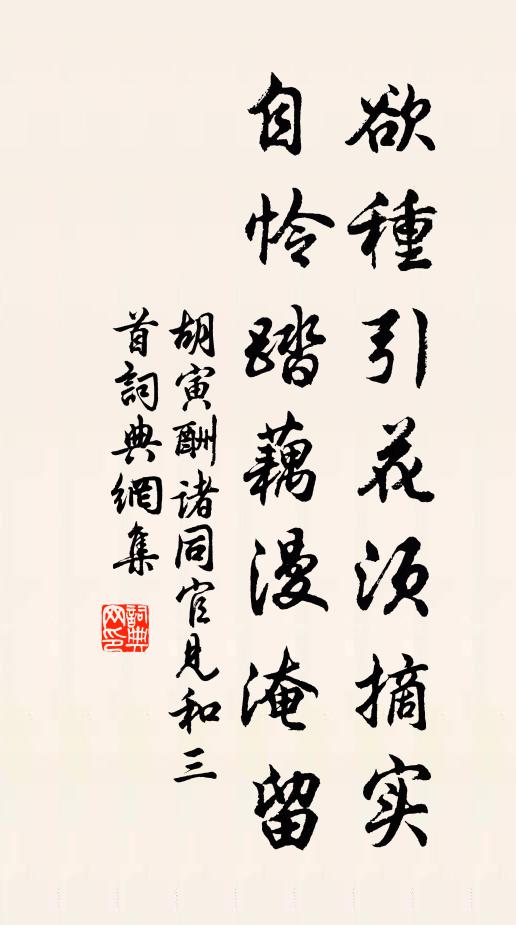 欲種引花須摘实
自怜踏藕漫淹留
胡寅酬诸同官見和三
首詞典網集
詞典
网印